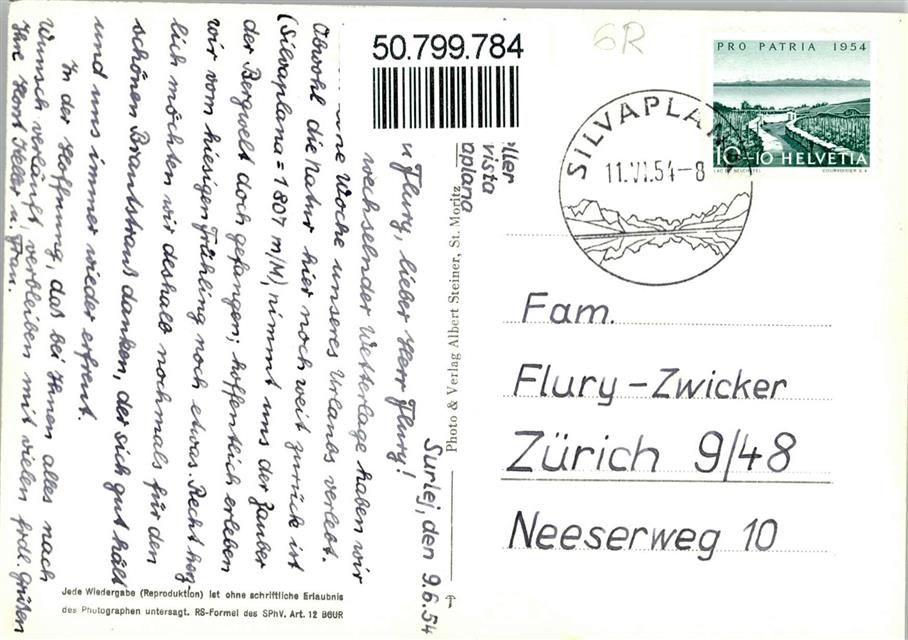 50.799.784
6R
PRO PATRIA 1954
10+10 HELVETIA
LAC DE NEUCHATEL
COURVOISIER S.A.
SILVAPLANA
11.VI.54-8
ller
vista
aplana
Photo & Verlag Albert Steiner, St. Moritz
Fam.
Flury-Zwicker
Zürich 9/48
Neeserweg 10
Surlej, den 9.6.54
u Flury, lieber Herr Flury!
wechselnder Wetterlage haben wir
ne Woche unseres Urlaubs verlebt.
Obwohl die Natur hier noch weit zurück ist
(Silvaplana = 1807 m/M), nimmt uns der Zauber
der Bergwelt doch gefangen; hoffentlich erleben
wir vom hiesigen Frühling noch etwas. Recht herz-
lich möchten wir deshalb nochmals für den
schönen Brautstrauß danken, der sich gut hält
und uns immer wieder erfreut.
In der Hoffnung, daß bei Ihnen alles nach
Wunsch verläuft, verbleiben mit vielen frdl. Grüßen
Ihre Horst Heller u. Frau.
Jede Wiedergabe (Reproduktion) ist ohne schriftliche Erlaubnis
des Photographen untersagt. RS-Formel des SPhV. Art. 12 BGUR